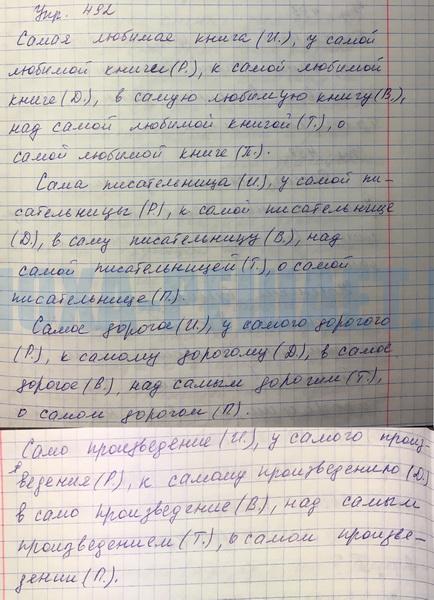 Упр. 492
Самая любимая книга (И.), у самой
любимой книги (Р.), к самой любимой
книге (Д), в самую любимую книгу (В.),
над самой любимой книгой (Т.), о
самой любимой книге (П.).
Сама писательница (И), у самой пи-
сательницы (Р), к самой писательнице
(Д), в саму писательницу (В.), над
самой писательницей (Т.), о самой
писательнице (П).
Самое дорогое (И), у самого дорогого
(Р.), к самому дорогому (Д), в самое
дорогое (В.), над самым дорогим (Т.),
о самом дорогом (П).
Само произведение (И.), у самого произ-
ведения (Р.), к самому произведению (Д)
в само произведение (В.), над самым
произведением (Т.), о самом произве-
дении (П.).